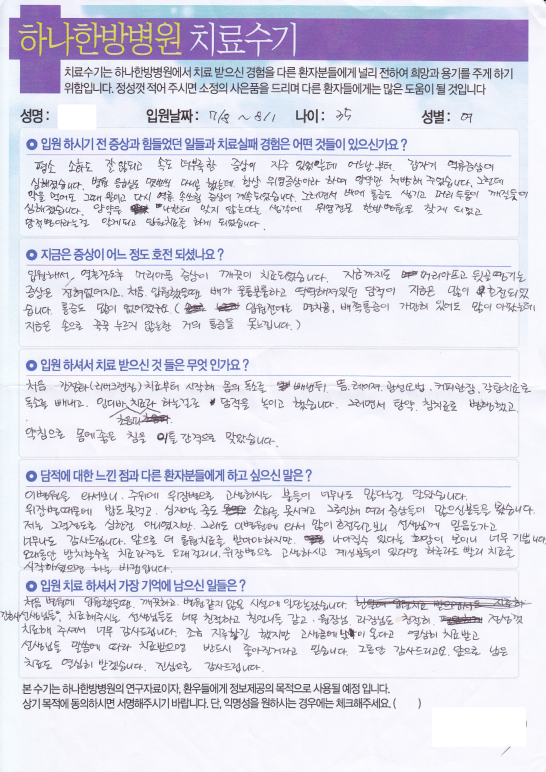 하나한방병원 치료수기
치료수기는 하나한방병원에서 치료 받으신 경험을 다른 환자분들에게 널리 전하여 희망과 용기를 주게 하기
위함입니다. 정성껏 적어 주시면 소정의 사은품을 드리며 다른 환자분들에게는 많은 도움이 될 것입니다
성명 : 입원날짜 : 7/8 ~ 8/1 나이 : 35 성별 : 여
입원 하시기 전 증상과 힘들었던 일들과 치료실패 경험은 어떤 것들이 있으신가요 ?
평소 소화도 잘 안되고 속도 더부룩한 증상이 자주 있었는데 어느날부터 갑자기 역류증상이
심해졌습니다. 병원 응급실도 몇번씩 다녔고 했는데, 항상 위염증상이라 하며 양약만 처방해 주었습니다. 그런데
약을 먹어도 그때 뿐이고 다시 역류, 속쓰림 증상이 계속되었습니다. 그러면서 배에 통증도 생기고 머리 두통이
심해졌습니다. 양약은 낫지 않는다는 생각에 위염전문 한방병원을 찾게 되었고
담적병이라는걸 알게되고 입원치료를 하게 되었습니다.
지금은 증상이 어느 정도 호전 되셨나요 ?
입원해서, 역류진료후 머리아픈 증상이 깨끗이 치료되었습니다. 지금까지도 머리아프고 뒷골 땡기는
증상은 전혀없어지고, 처음 입원했을때 배가 울퉁불퉁하고 딱딱해져있던 담적이 지금은 많이 호전되었
습니다. 통증도 많이 없어졌구요 ( 입원전에는 명치쪽, 배쪽통증이 가만히 있어도 많이 아팠는데,
지금은 손으로 꾹꾹 누르지 않는한 거의 통증을 못느낍니다. )
입원 하셔서 치료 받으신 것 들은 무엇 인가요 ?
처음 간정화(리버크린징) 치료부터 시작해 몸의 독소를 빼낸뒤, 뜸, 레이저, 커피관장, 각탕치료로
독소를 빼내고, 치료라 하는걸로 담적을 녹이고 했습니다. 그러면서 탕약, 침치료로 병행했고,
약침으로 몸에좋은 침을 이틀 간격으로 맞았습니다.
담적에 대한 느낀 점과 다른 환자분들에게 하고 싶으신 말은 ?
이병원을 와서보니, 주위에 위장병으로 고생하시는 분들이 너무나도 많다는걸 알았습니다.
위장병때문에 밥도 못먹고, 심지어는 죽도 소화를 못시키고 그로인해 여러증상들이 많으신분들을 봤습니다.
저는 그정도로 심한건 아니였지만, 그래도 이병원에 와서 많이 호전되고보니 선생님께 믿음도가고
너무나도 감사드립니다. 앞으로 더 통원치료를 받아야하지만, 나아질수 있다는 희망이 보이니 너무 기쁩니다.
오래동안 방치할수록 치료과정도 오래걸리니, 위장병으로 고생하시고 계신분들이 있다면 하루라도 빨리 치료를
시작하셨으면 하는 바램입니다.
입원 치료 하셔서 가장 기억에 남으신 일들은 ?
처음 병원에 입원했을때, 깨끗하고 병원같지 않은 시설에 일단놀랬습니다.
간호사선생님들, 치료해주시는 선생님들도 너무 친절하고 천사나들 같고, 원장님, 과장님도 친절히 정성껏
치료해 주셔서 너무 감사드립니다. 조금 지루할긴 했지만 고생끝에 낙이 온다고 열심히 치료받고
선생님들 말씀에 따라 치료받으면 반드시 좋아질거라고 믿습니다. 그동안 감사드리고요. 앞으로 남은
치료도 열심히 받겠습니다. 진심으로 감사드립니다.
본 수기는 하나한방병원의 연구자료이자, 환우들에게 정보제공의 목적으로 사용될 예정 입니다.
상기 목적에 동의하시면 서명해주시기 바랍니다. 단, 익명성을 원하시는 경우에는 체크해주세요. ( )